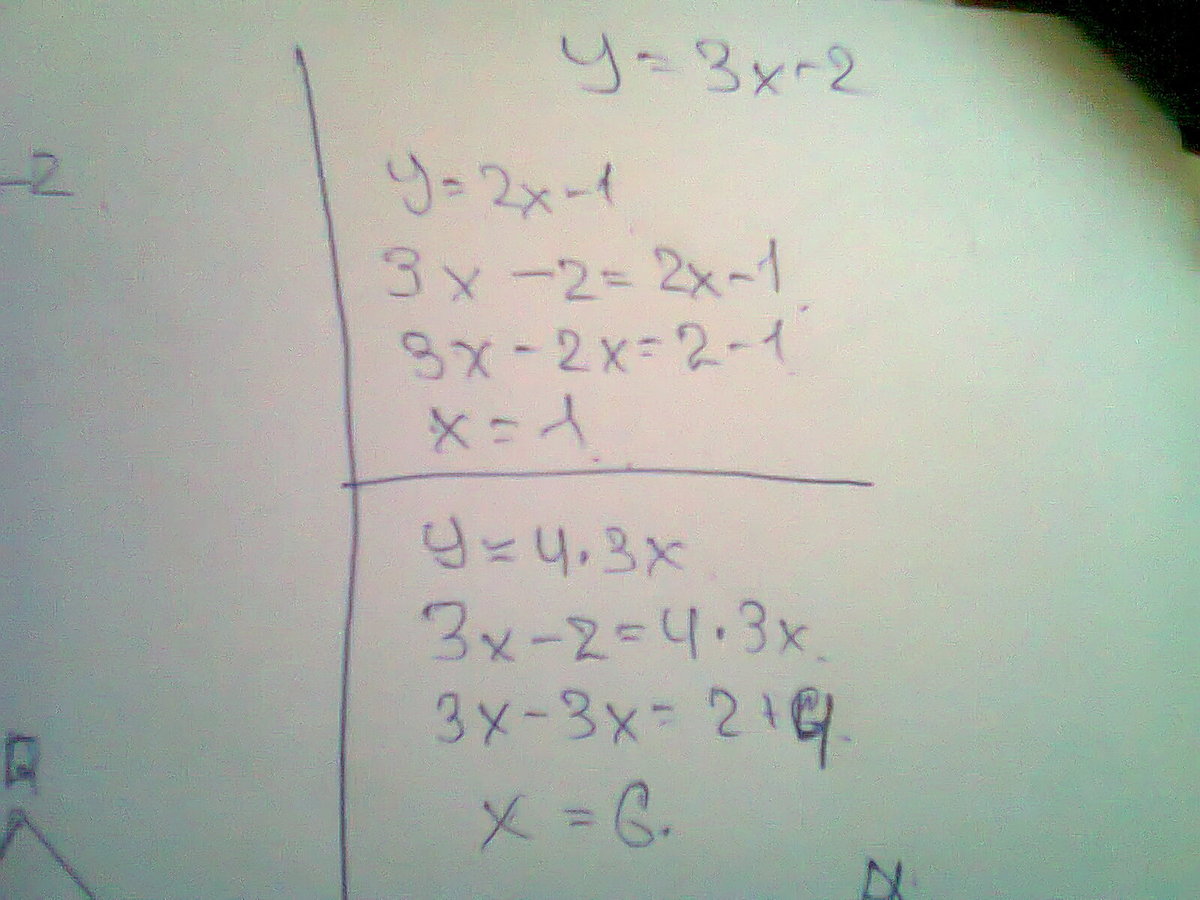 y = 3x - 2
-2
y = 2x - 1
3x - 2 = 2x - 1
3x - 2x = 2 - 1
x = 1
y = 4 · 3x
3x - 2 = 4 · 3x
3x - 3x = 2 + 4
x = 6.